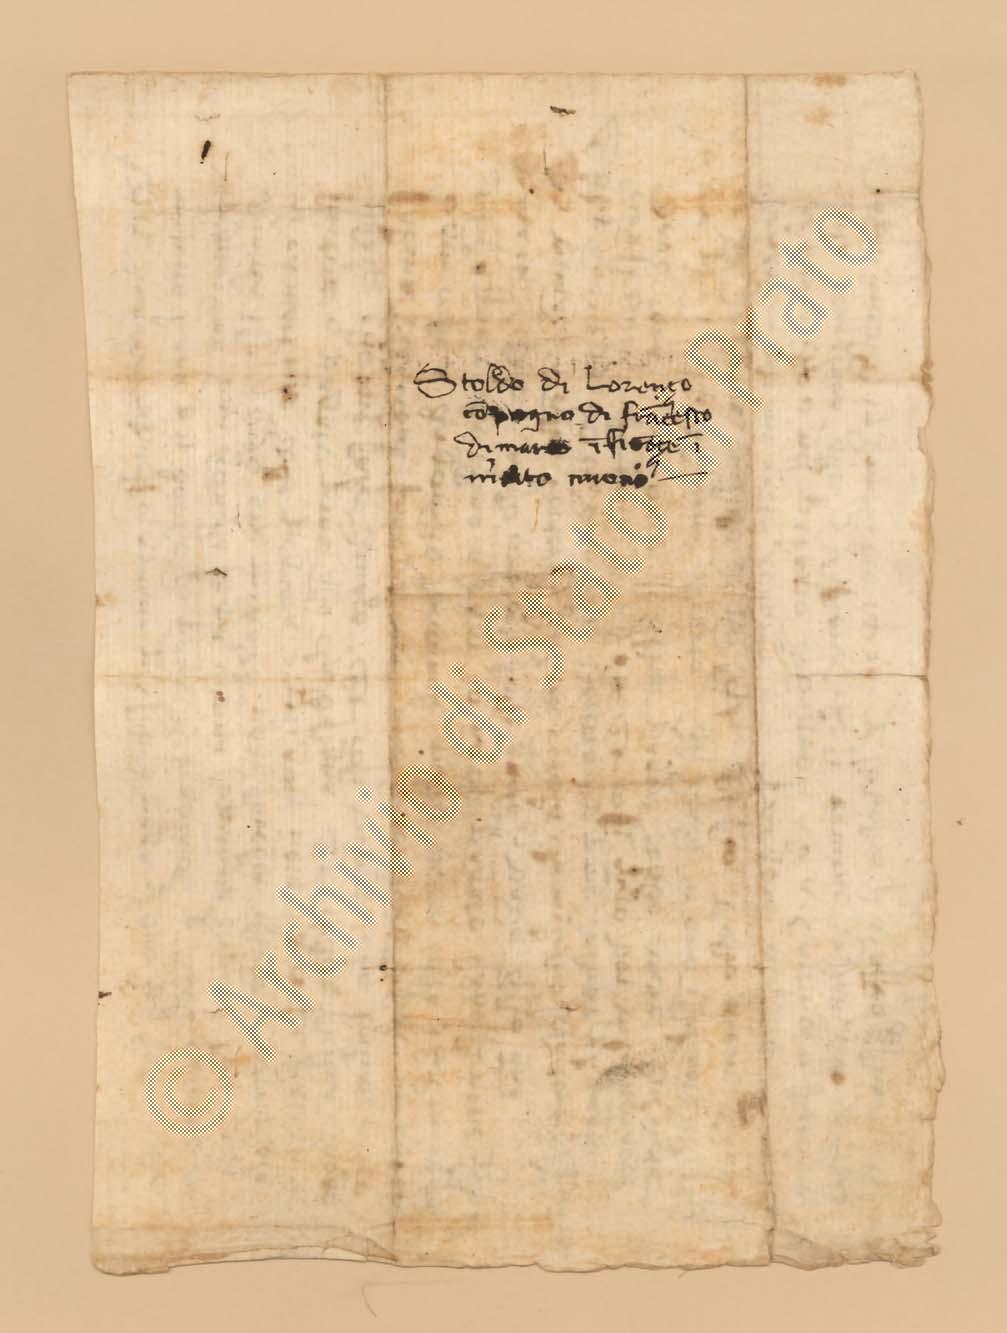 Stoldo di Lorenço
cōpagno di francescho
di marco ī firēçe ī
merchato nuovo
© Archivio di Stato di Prato